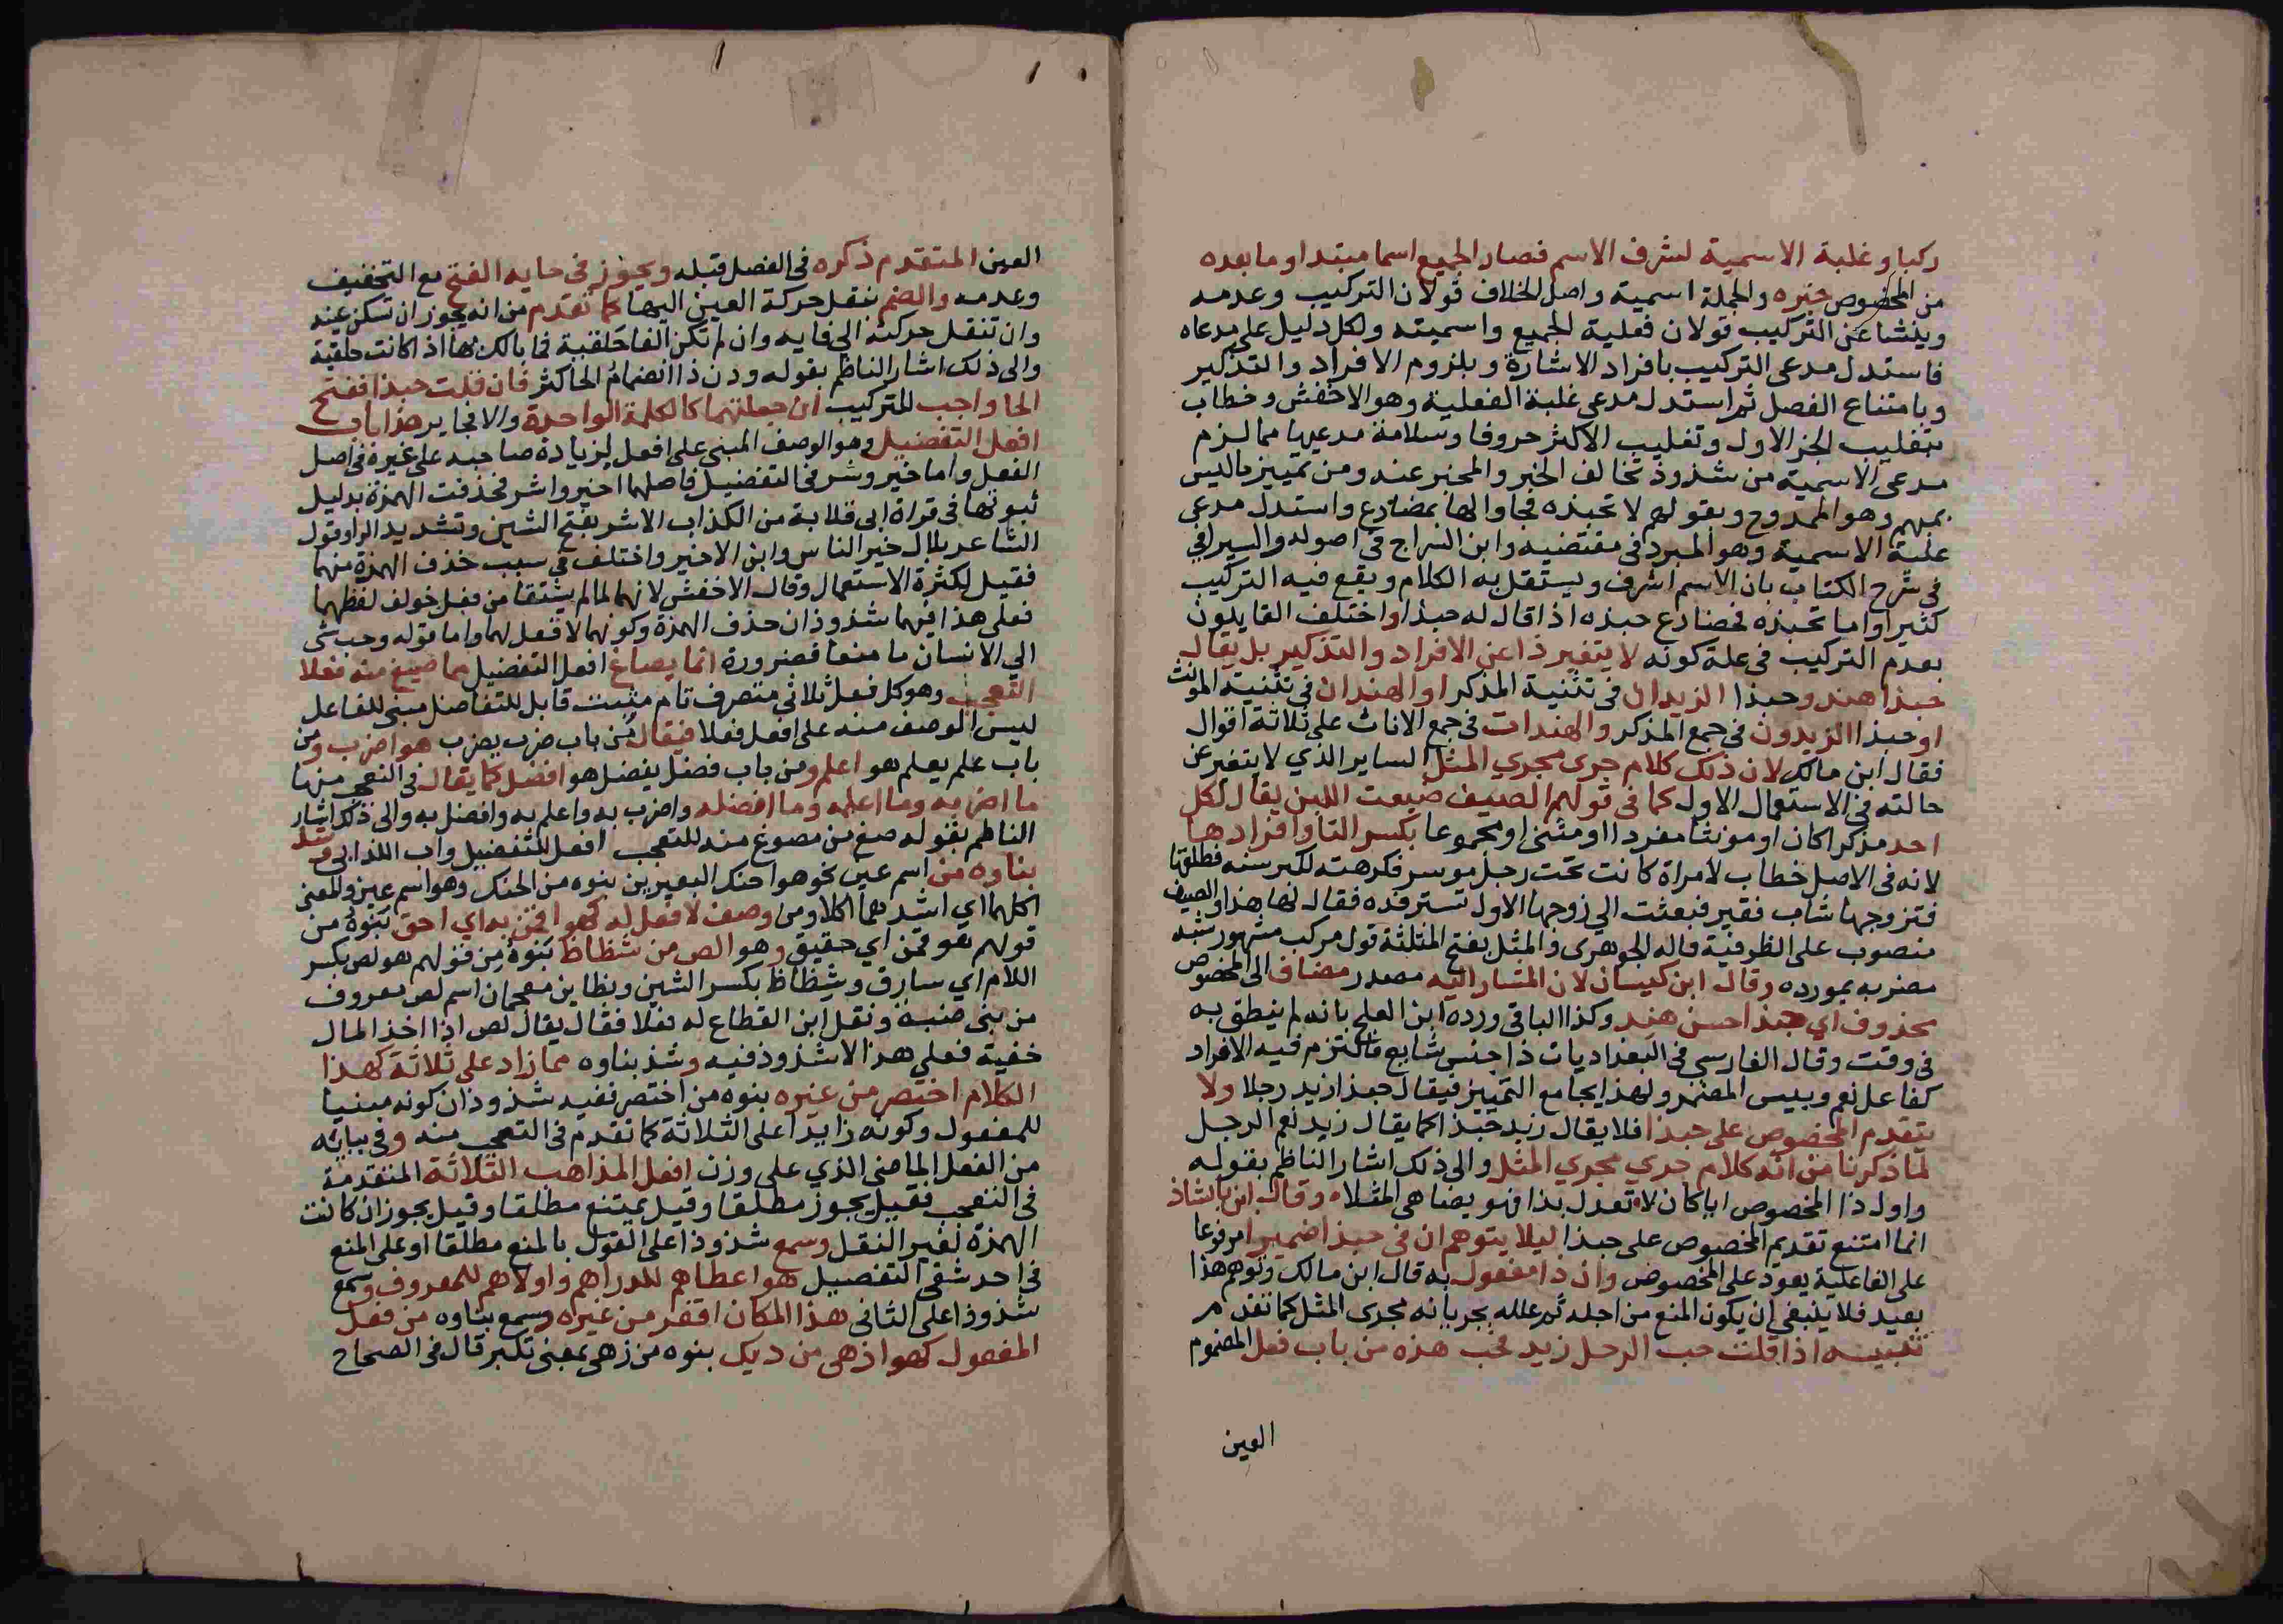 ركبا وغلبة الاسمية لشرف الاسم فصار الجميع اسما مبتدا وما بعده
من المخصوص خبره والجملة اسمية واصل الخلاف قولان التركيب وعدمه
وينشا عن التركيب قولان فعلية الجميع واسميته ولكل دليل على مدعاه
فاستدل مدعي التركيب بافراد الاشارة وبلزوم الافراد والتذكير
وبامتناع الفصل ثم استدل مدعي غلبة الفعلية وهو الاخفش وخطاب
بتغليب الجز الاول وتغليب الاكثر حروفا وسلامة مدعيها مما لزم
مدعي الاسمية من شذوذ تخالف الخبر والمخبر عنه ومن تمييز ما ليس
بمبهم وهو الممدوح وبقولهم لا تحبذه فجاوا لها بمضارع واستدل مدعي
غلبة الاسمية وهو المبرد في مقتضبه وابن السراج في اصوله والسيرافي
في شرح الكتاب بان الاسم اشرف ويستقل به الكلام ويقع فيه التركيب
كثيرا واما تحبذه فمضارع حبذه اذا قال له حبذا واختلف القايلون
بعدم التركيب في علة كونه لا يتغير ذا عن الافراد والتذكير بل يقال
حبذا هند وحبذا الزيدان في تثنية المذكر او الهندان في تثنية المونث
او حبذا الزيدون في جمع المذكر والهندات في جمع الاناث على ثلاثة اقوال
فقال ابن مالك لان ذلك كلام جرى مجرى المثل الساير الذي لا يتغير عن
حالته في الاستعمال الاول كما في قولهم الصيف ضيعت اللبن يقال لكل
احد مذكرا كان او مونثا مفردا او مثنى او مجموعا بكسر التا وافرادها
لانه في الاصل خطاب لامراة كانت تحت رجل موسر فكرهته لكبر سنه فطلقها
فتزوجها شاب فقير فبعثت الي زوجها الاول تسترفده فقال لها هذا والصيف
منصوب على الظرفية قاله الجوهرى والمثل بفتح المثلثة قول مركب مشهور شبه
مضربه بمورده وقال ابن كيسان لان المشار اليه مصدر مضاف الى المخصوص
محذوف اي حبذا حسن هند وكذا الباقي ورده ابن العلج بانه لم ينطق به
في وقت وقال الفارسي في البغداديات ذا جنس شايع فالتزم فيه الافراد
كفاعل نعم وبيس المضمر ولهذا يجامع التمييز فيقال حبذا زيد رجلا ولا
يتقدم المخصوص على حبذا فلا يقال زيد حبذا كما يقال زيد نعم الرجل
لما ذكرنا من انه كلام جرى مجري المثل والى ذلك اشار الناظم بقوله
واول ذا المخصوص ايا كان لا تعدل بذا فهو يضاهي المثلا وقال ابن بابشاذ
انما امتنع تقديم المخصوص على حبذا ليلا يتوهم ان في حبذا ضميرا مرفوعا
على الفاعلية يعود على المخصوص وان ذا مفعول به قال ابن مالك وتوهم هذا
بعيد فلا ينبغي ان يكون المنع من اجله ثم علله بجريانه مجرى المثل كما تقدم
تنبيه اذا قلت حب الرجل زيد فحب هذه من باب فعل المضموم
العين
العين المتقدم ذكره في الفصل قبله ويجوز في حايه الفتح مع التخفيف
وعدمه والضم بنقل حركة العين اليها كما تقدم من انه يجوز ان تسكن عينه
وان تنقل حركته الى فايه وان لم تكن الفا حلقية فما بالك بها اذا كانت حلقية
والى ذلك اشار الناظم بقوله ودن ذا انضمام الحا كثر فان قلت حبذا ففتح
الحا واجب للتركيب ان جعلتهما كالكلمة الواحدة والا فجايز هذا باب
افعل التفضيل وهو الوصف المبني على افعل لزيادة صاحبه على غيره في اصل
الفعل واما خير وشر في التفضيل فاصلهما اخير واشر فحذفت الهمزة بدليل
ثبوتها في قراة ابي قلابة من الكذاب الاشر بفتح الشين وتشديد الرا وقول
الشاعر بلال خير الناس وابن الاخير واختلف في سبب حذف الهمزة منهما
فقيل لكثرة الاستعمال وقال الاخفش لانهما لما لم يشتقا من فعل خولف لفظهما
فعلى هذا فيهما شذوذان حذف الهمزة وكونهما لا فعل لهما واما قوله وحب شي
الي الانسان ما منعا فضرورة انما يصاغ افعل التفضيل مما صيغ منه فعلا
التعجب وهو كل فعل ثلاثي متصرف تام مثبت قابل للتفاضل مبني للفاعل
ليس الوصف منه على افعل فعلا فيقال من باب ضرب يضرب هو اضرب ومن
باب علم يعلم هو اعلم ومن باب فضل يفضل هو افضل كما يقال في التعجب منها
ما اضربه وما اعلمه وما افضله واضرب به واعلم به وافضل به والى ذلك اشار
الناظم بقوله صغ من مصوغ منه للتعجب افعل للتفضيل واب اللذ ابي وشذ
بناوه من اسم عين نحو هو احنك البعيرين بنوه من الحنك وهو اسم عين والمعنى
اكلهما اي اشدهما اكلا ومن وصف لا فعل له كهو اقمن به اي احق بنوه من
قولهم هو قمن اي حقيق وهو الص من شظاظ بنوه من قولهم هو لص بكسر
اللام اي سارق وشظاظ بكسر الشين وبظاين معجمتان اسم لص معروف
من بني ضبة ونقل ابن القطاع له فعلا فقال يقال لص اذا اخذ المال
خفية فعلي هذا لا شذوذ فيه وشذ بناوه مما زاد على ثلاثة كهذا
الكلام اختصر من غيره بنوه من اختصر ففيه شذوذان كونه مبنيا
للمفعول وكونه زايدا على الثلاثة كما تقدم في التعجب منه وفي بنايه
من الفعل الماضي الذي على وزن افعل المذاهب الثلاثة المتقدمة
في التعجب فقيل يجوز مطلقا وقيل يمتنع مطلقا وقيل يجوز ان كانت
الهمزة لغير النقل وسمع شذوذا على القول بالمنع مطلقا او على المنع
في احد شقي التفصيل هو اعطاهم للدراهم واولاهم للمعروف وسمع
شذوذا على الثاني هذا المكان اقفر من غيره وسمع بناوه من فعل
المفعول كهو ازهى من ديك بنوه من زهي بمعنى تكبر قال في الصحاح